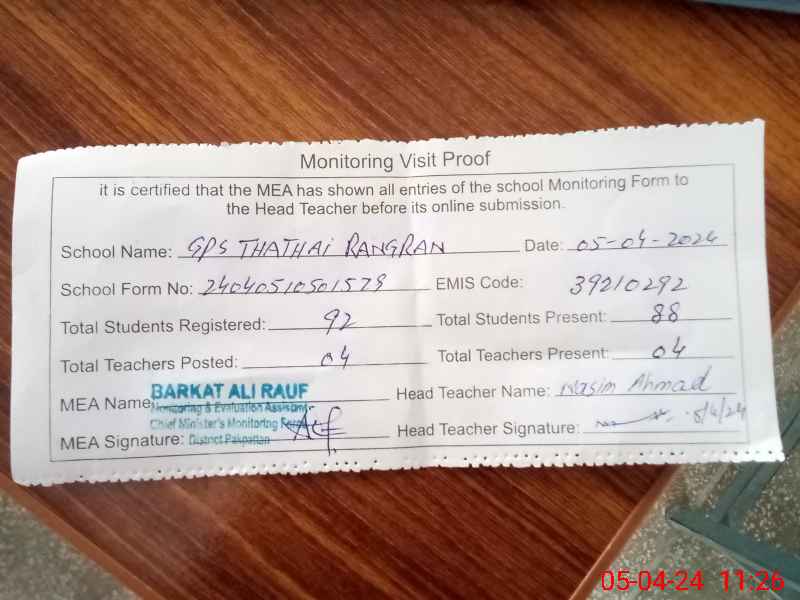 Monitoring Visit Proof
it is certified that the MEA has shown all entries of the school Monitoring Form to
the Head Teacher before its online submission.
School Name: GPS THATHAI RANGRAN Date: 05-04-2024
School Form No: 24040510501579 EMIS Code: 39210292
Total Students Registered: 92 Total Students Present: 88
Total Teachers Posted: 04 Total Teachers Present: 04
MEA Name: BARKAT ALI RAUF Head Teacher Name: Nasim Ahmad
Monitoring & Evaluation Assistant
Chief Minister's Monitoring Force
MEA Signature: District Pakpattan Head Teacher Signature: 5/4/24
05-04-24 11:26